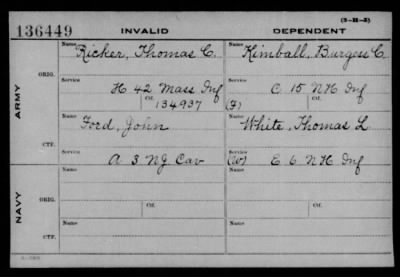 (3-21-3)
136449 INVALID DEPENDENT
Name Ricker, Thomas C. Name Kimball, Burgess C
ORIG.
Service H 42 Mass Inf Service C 15 NH Inf
Ctf. 134937 (F) Ctf.
ARMY
Name Ford, John Name White, Thomas L
CTF.
Service A 3 NJ Cav Service (W) E 6 NH Inf
Name Ctf. Name Ctf.
ORIG.
NAVY
Name Ctf. Name Ctf.
CTF.